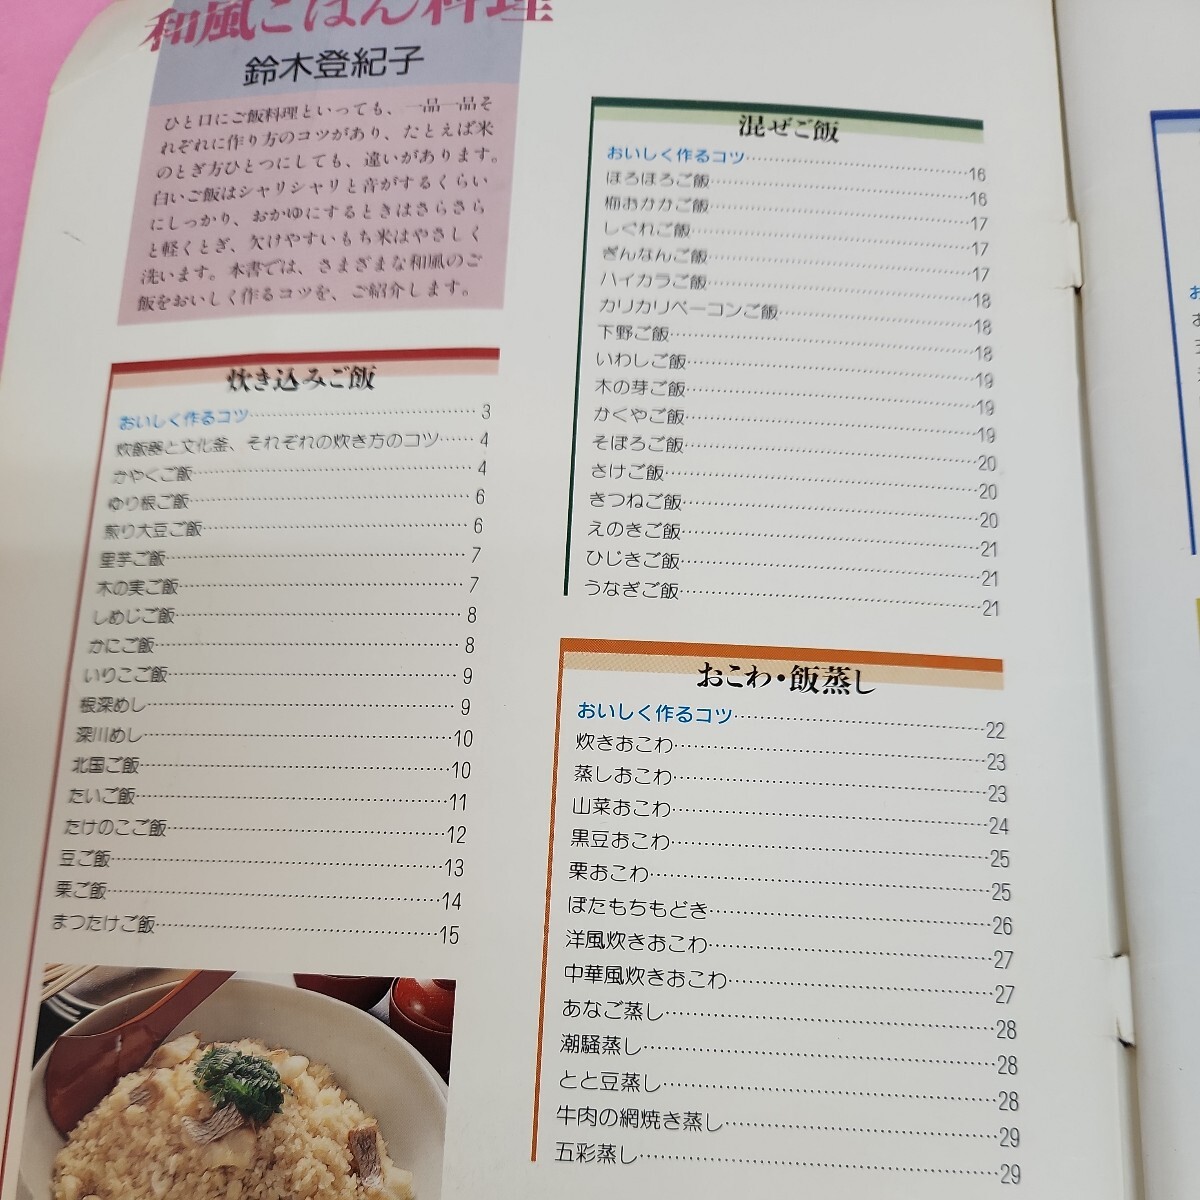 和風ごはん料理
鈴木登紀子
ひと口にご飯料理といっても、一品一品そ
れぞれに作り方のコツがあり、たとえば米
のとぎ方ひとつにしても、違いがあります。
白いご飯はシャリシャリと音がするくらい
にしっかり、おかゆにするときはさらさら
と軽くとぎ、欠けやすいもち米はやさしく
洗います。本書では、さまざまな和風のご
飯をおいしく作るコツを、ご紹介します。
炊き込みご飯
おいしく作るコツ……3
炊飯器と文化釜、それぞれの炊き方のコツ……4
かやくご飯……4
ゆり根ご飯……6
煎り大豆ご飯……6
里芋ご飯……7
木の実ご飯……7
しめじご飯……8
かにご飯……8
いりこご飯……9
根深めし……9
深川めし……10
北国ご飯……10
たいご飯……11
たけのこご飯……12
豆ご飯……13
栗ご飯……14
まつたけご飯……15
混ぜご飯
おいしく作るコツ……16
ほろほろご飯……16
梅おかかご飯……17
しぐれご飯……17
ぎんなんご飯……17
ハイカラご飯……18
カリカリベーコンご飯……18
下野ご飯……18
いわしご飯……19
木の芽ご飯……19
かくやご飯……19
そぼろご飯……20
さけご飯……20
きつねご飯……20
えのきご飯……21
ひじきご飯……21
うなぎご飯……21
おこわ・飯蒸し
おいしく作るコツ……22
炊きおこわ……23
蒸しおこわ……23
山菜おこわ……24
黒豆おこわ……25
栗おこわ……25
ぼたもちもどき……26
洋風炊きおこわ……27
中華風炊きおこわ……27
あなご蒸し……28
潮騒蒸し……28
とと豆蒸し……28
牛肉の網焼き蒸し……29
五彩蒸し……29